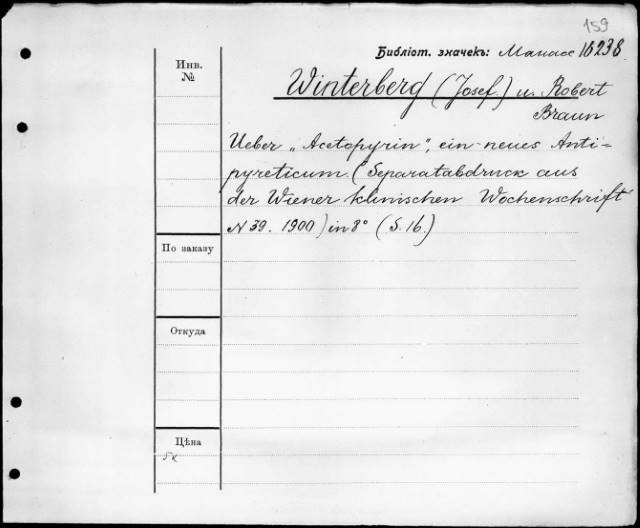 159
Библіот. значекъ: Манасс 16238
Инв.
№
Winterberg (Josef.) u. Robert
Braun
Ueber „Acetopyrin", ein neues Anti=
pyreticum. (Separatabdruck aus
der Wiener klinischen Wochenschrift
N 39. 1900) in 8° (S. 16.)
По заказу
Откуда
Цѣна
5к